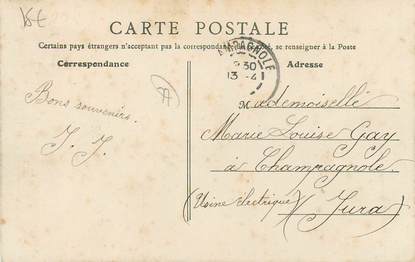 CARTE POSTALE
Certains pays étrangers n'acceptant pas la correspondance au recto, se renseigner à la Poste
Correspondance
Adresse
CHAMPAGNOLE
30
13 -4
Bons souvenirs.
J. J.
Mademoiselle
Marie Louise Gay
à Champagnole
(Usine électrique) (Jura)